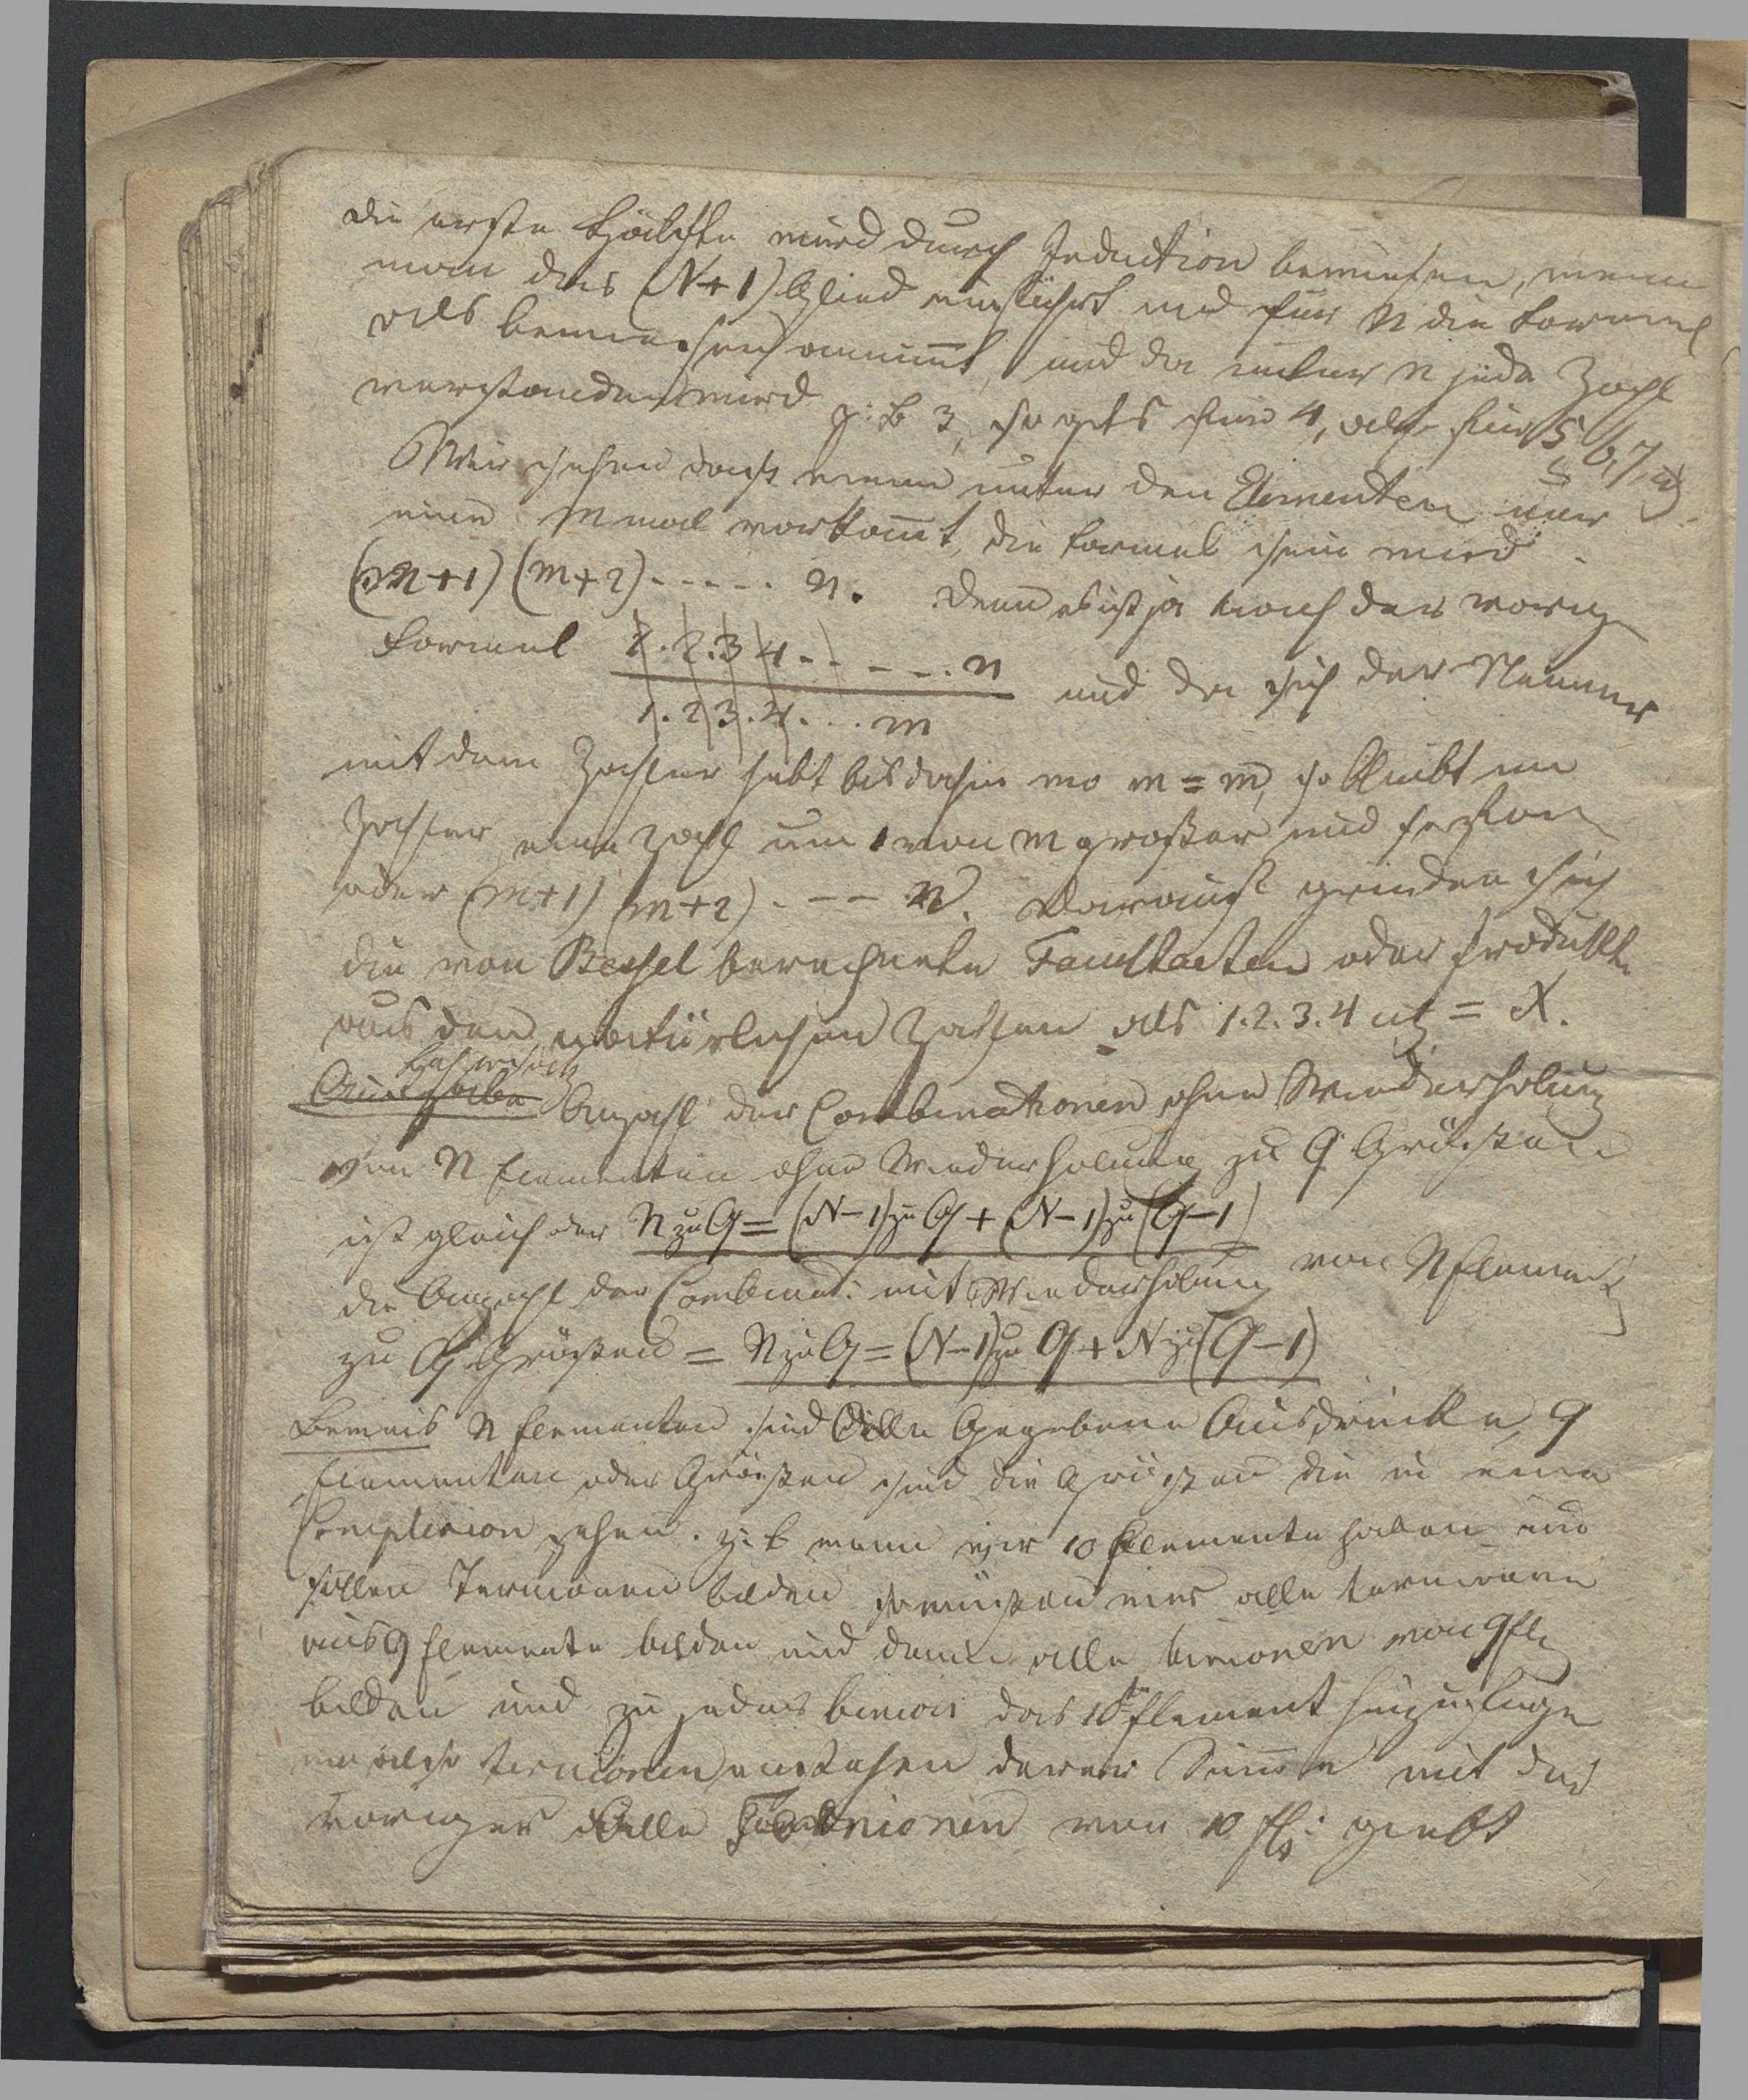 die erste Hälfte wird durch Induction bewiesen, wenn
man das (N+1) Glied einführt und für N die Formel
als bewiesen annimmt, und da unter n jede Zahl
verstanden wird z: B 3, so gilts für 4, also für 5, 6, 7, etz.
Wir sehen daß wenn unter den Elementen nur
eine m mal vorkomt, die Formel sein wird
(m+1) (m+2) - - - - - n. denn es ist ja nach der vorige
Formel 1. 2. 3 4 - - - - . n und da sich der Nenner
1. 2 3. 4. . . . m
mit dem Zähler hebt bis dahin wo m = m, so bleibt im
Zähler eine Zahl um 1 von m großer und so fort
oder (m+1) (m+2) - - - n. Darauf gründen sich
die von Bessel berechnete Facultaeten oder Produkte
aus den natürlichen Zahlen als 1. 2. 3. 4 etz = X.
Lehrsatz
Aufgabe Anzahl der Combinationen ohne Wiederholung
von N Elementen ohne Wiederholung zu Q Größen
ist gleich der N zu Q = (N-1) zu Q + (N-1) zu (Q-1)
die Anzahl der Combinat: mit Wiederholung von N Element
zu Q Größen = N zu Q = (N-1) zu Q + N zu (Q-1)
Beweis N Elementen sind Alle Gegebene Ausdrücke, Q
Elementen oder Größen sind die Größen die in eine
Complexion gehen. z: B wenn wir 10 Elemente haben und
sollen Ternionen bilden so müßen wir alle ternionen
aus 9 Elemente bilden und dann alle binionen von 9 Ele
bilden und zu jeder binion das 10te Element hinzufüge
wo also ternionen entstehen deren Summe mit der
voriger Alle Ternionen von 10 Ele: giebt